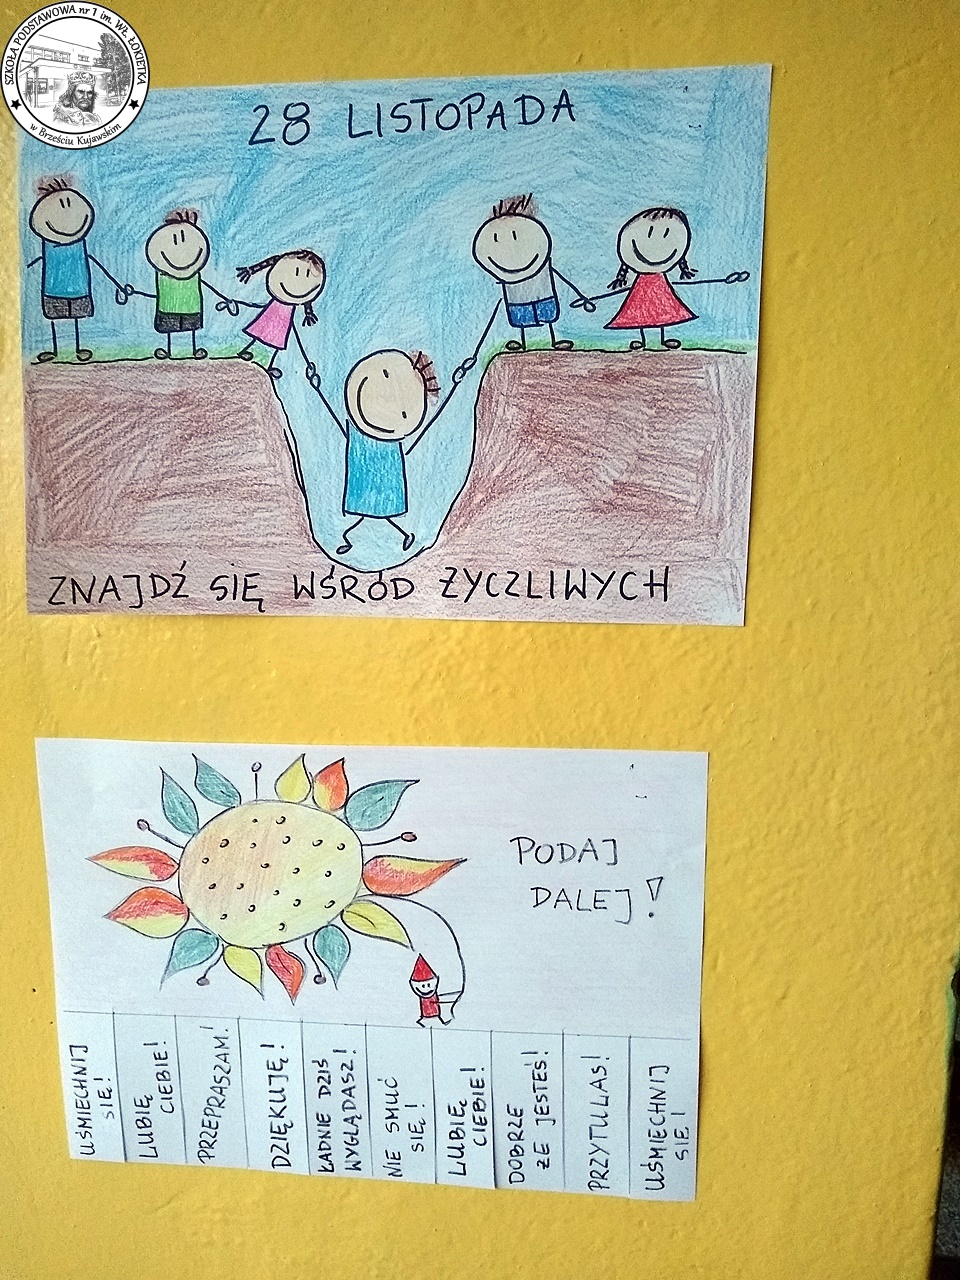 SZKOŁA PODSTAWOWA nr 1 im. WŁ. ŁOKIETKA
w Brześciu Kujawskim
28 LISTOPADA
ZNAJDŹ SIĘ WŚRÓD ŻYCZLIWYCH
PODAJ
DALEJ!
UŚMIECHNIJ
SIĘ!
LUBIĘ
CIEBIE!
PRZEPRASZAM!
DZIĘKUJĘ!
ŁADNIE DZIŚ
WYGLĄDASZ!
NIE SMUĆ
SIĘ!
LUBIĘ
CIEBIE!
DOBRZE
ŻE JESTEŚ!
PRZYTULAS!
UŚMIECHNIJ
SIĘ!